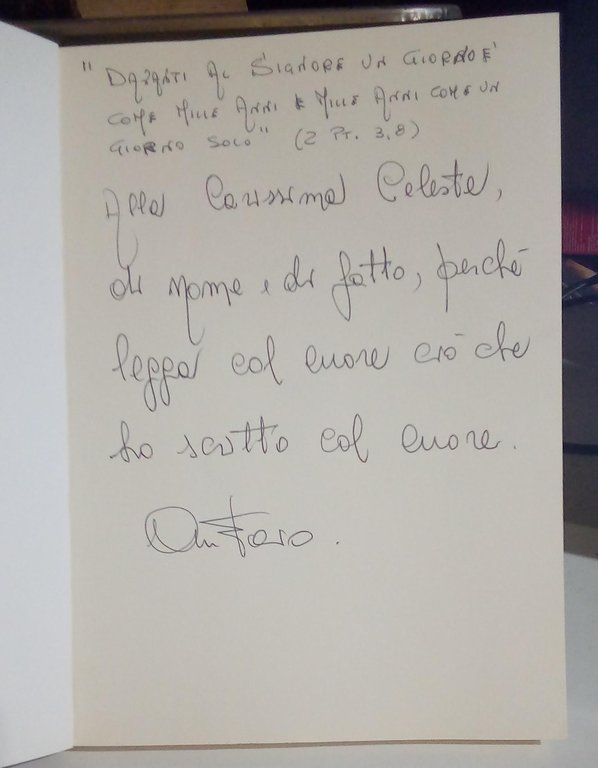 "DAVANTI AL SIGNORE UN GIORNO È
COME MILLE ANNI E MILLE ANNI COME UN
GIORNO SOLO" (2 PT. 3,8)
Alla Carissima Celeste,
di nome e di fatto, perché
legga col cuore ciò che
ho scritto col cuore.